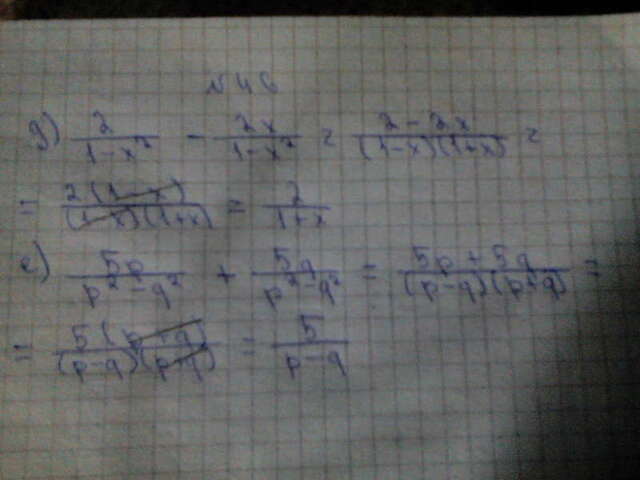 №46
д) 2/(1-x²) - 2x/(1-x²) = (2-2x)/((1-x)(1+x)) =
= 2(1-x)/((1-x)(1+x)) = 2/(1+x)
е) 5p/(p²-q²) + 5q/(p²-q²) = (5p+5q)/((p-q)(p+q)) =
= 5(p+q)/((p-q)(p+q)) = 5/(p-q)